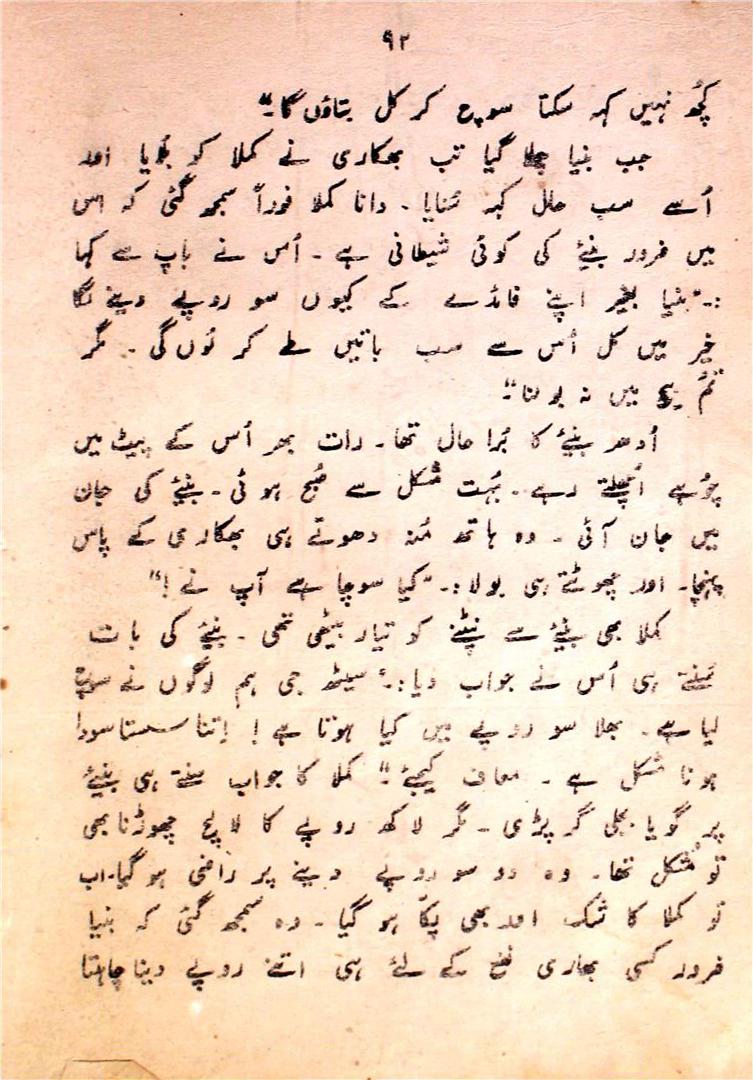 ۹۲
کچُھ نہیں کہہ سکتا سوچ کر کل بتاؤں گا۔"
جب بنیا چلا گیا تب بھکاری نے کملا کو بُلایا اور
اُسے سب حال کہہ سُنایا۔ دانا کملا فوراً سمجھ گئی کہ اس
میں ضرور بنیئے کی کوئی شیطانی ہے۔ اُس نے باپ سے کہا
:۔"بنیا بغیر اپنے فائدے کے کیوں سو روپے دینے لگا
خیر میں کل اُس سے سب باتیں طے کر لُوں گی۔ مگر
تمُ بیچ میں نہ بولنا"۔
اُدھر بنیئے کا بُرا حال تھا۔ رات بھر اُس کے پیٹ میں
چوُہے اُچھلتے رہے۔ بُہت مُشکل سے صُبح ہوئی۔ بنیئے کی جان
میں جان آئی۔ وہ ہاتھ مُنہ دھوتے ہی بھکاری کے پاس
پہنچا۔ اور چھوٹتے ہی بولا:۔"کیا سوچا ہے آپ نے!"
کملا بھی بنیئے سے نپٹنے کو تیار بیٹھی تھی۔ بنیئے کی بات
سُنتے ہی اُس نے جواب دیا:۔"سیٹھ جی ہم لوگوں نے سوچ
لیا ہے۔ بھلا سو روپے میں کیا ہوتا ہے! اِتنا سستا سودا
ہونا مُشکل ہے۔ معاف کیجئے۔" کملا کا جواب سنتے ہی بنیئے
پر گویا بجلی گر پڑی۔ مگر لاکھ روپے کا لالچ چھوڑنا بھی
تو مُشکل تھا۔ وہ دو سو روپے دینے پر راضی ہوگیا۔ اب
تو کملا کا شک اور بھی پکّا ہو گیا۔ وہ سمجھ گئی کہ بنیا
ضرور کسی بھاری نفع کے لئے ہی اتنے روپے دینا چاہتا